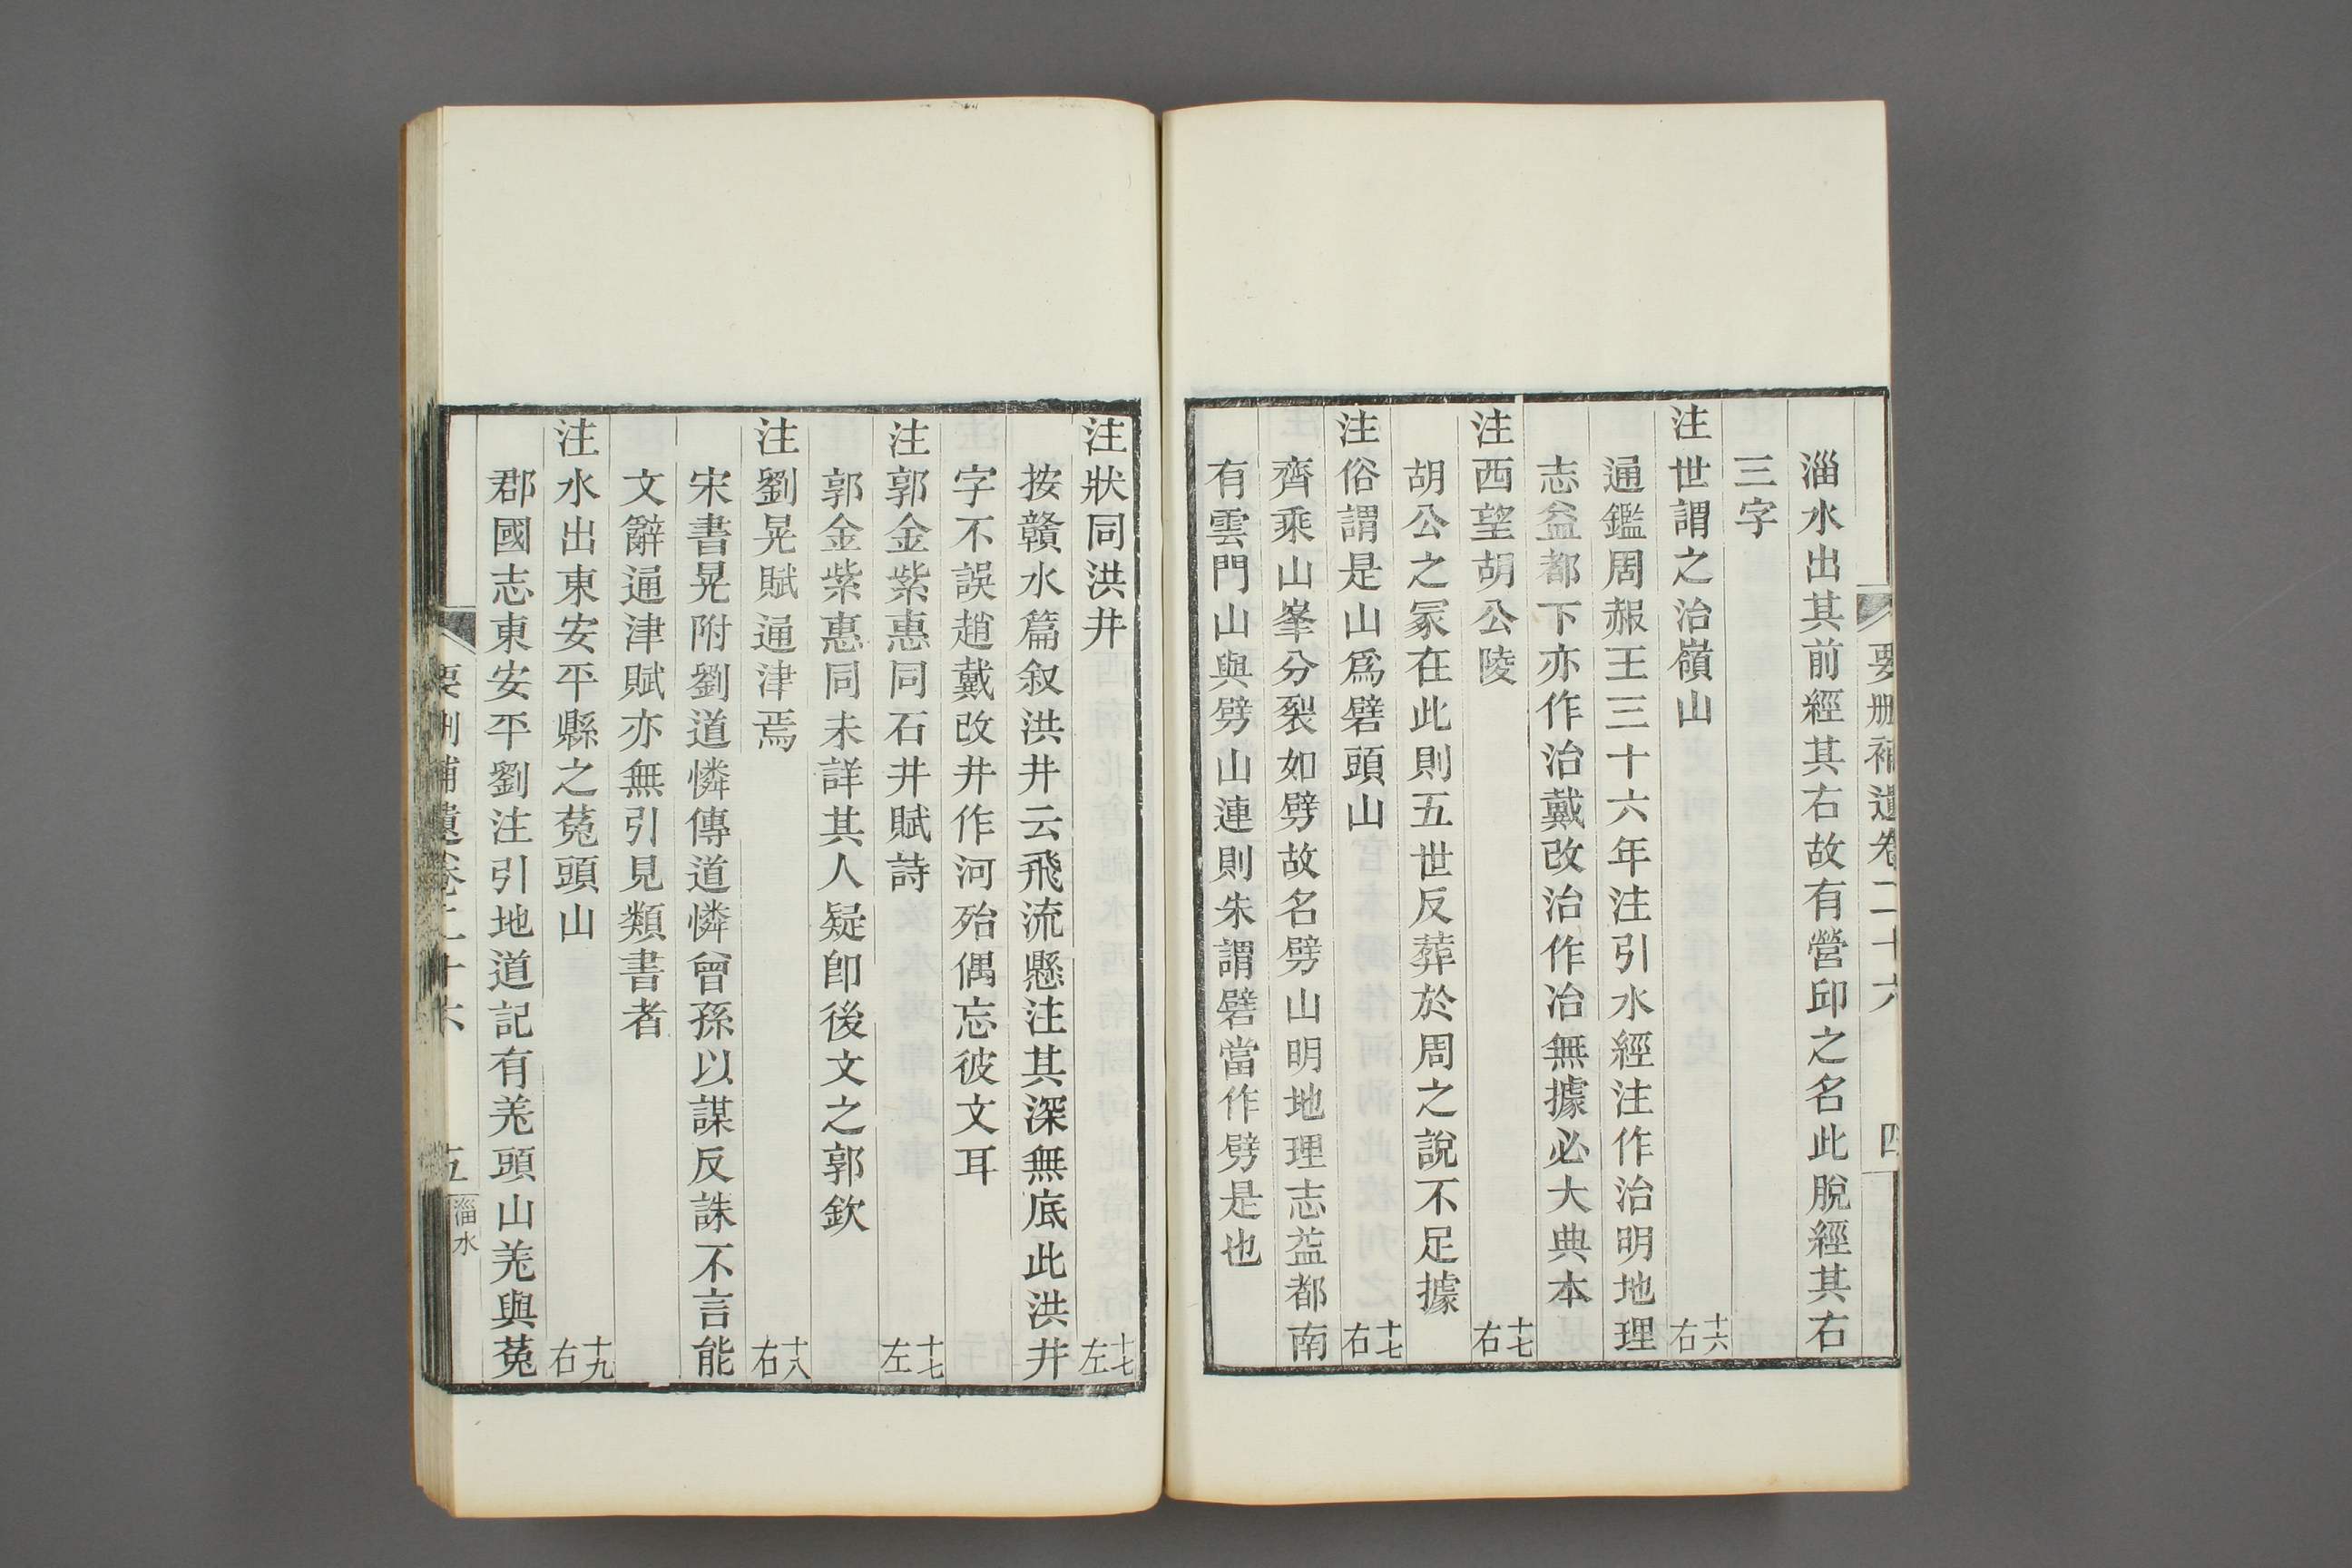 要刪補遺卷二十六 四
淄水出其前經其右故有營邱之名此脫經其右
三字
注世謂之冶嶺山 十六右
通鑑周赧王三十六年注引水經注作治明地理
志益都下亦作冶戴改治作冶無據必大典本
注西望胡公陵 十七右
胡公之冢在此則五世反葬於周之說不足據
注俗謂是山爲礕頭山 十七右
齊乘山峯分裂如劈故名劈山明地理志益都南
有雲門山與劈山連則朱謂礕當作劈是也
注狀同洪井 十七左
按贛水篇叙洪井云飛流懸注其深無底此洪井
字不誤趙戴改井作河殆偶忘彼文耳
注郭金紫惠同石井賦詩 十七左
郭金紫惠同未詳其人疑卽後文之郭欽
注劉晃賦通津焉 十八右
宋書晃附劉道憐傳道憐曾孫以謀反誅不言能
文辭通津賦亦無引見類書者
注水出東安平縣之菟頭山 十九右
郡國志東安平劉注引地道記有羌頭山羌與菟
要刪補遺卷二十六 五 淄水